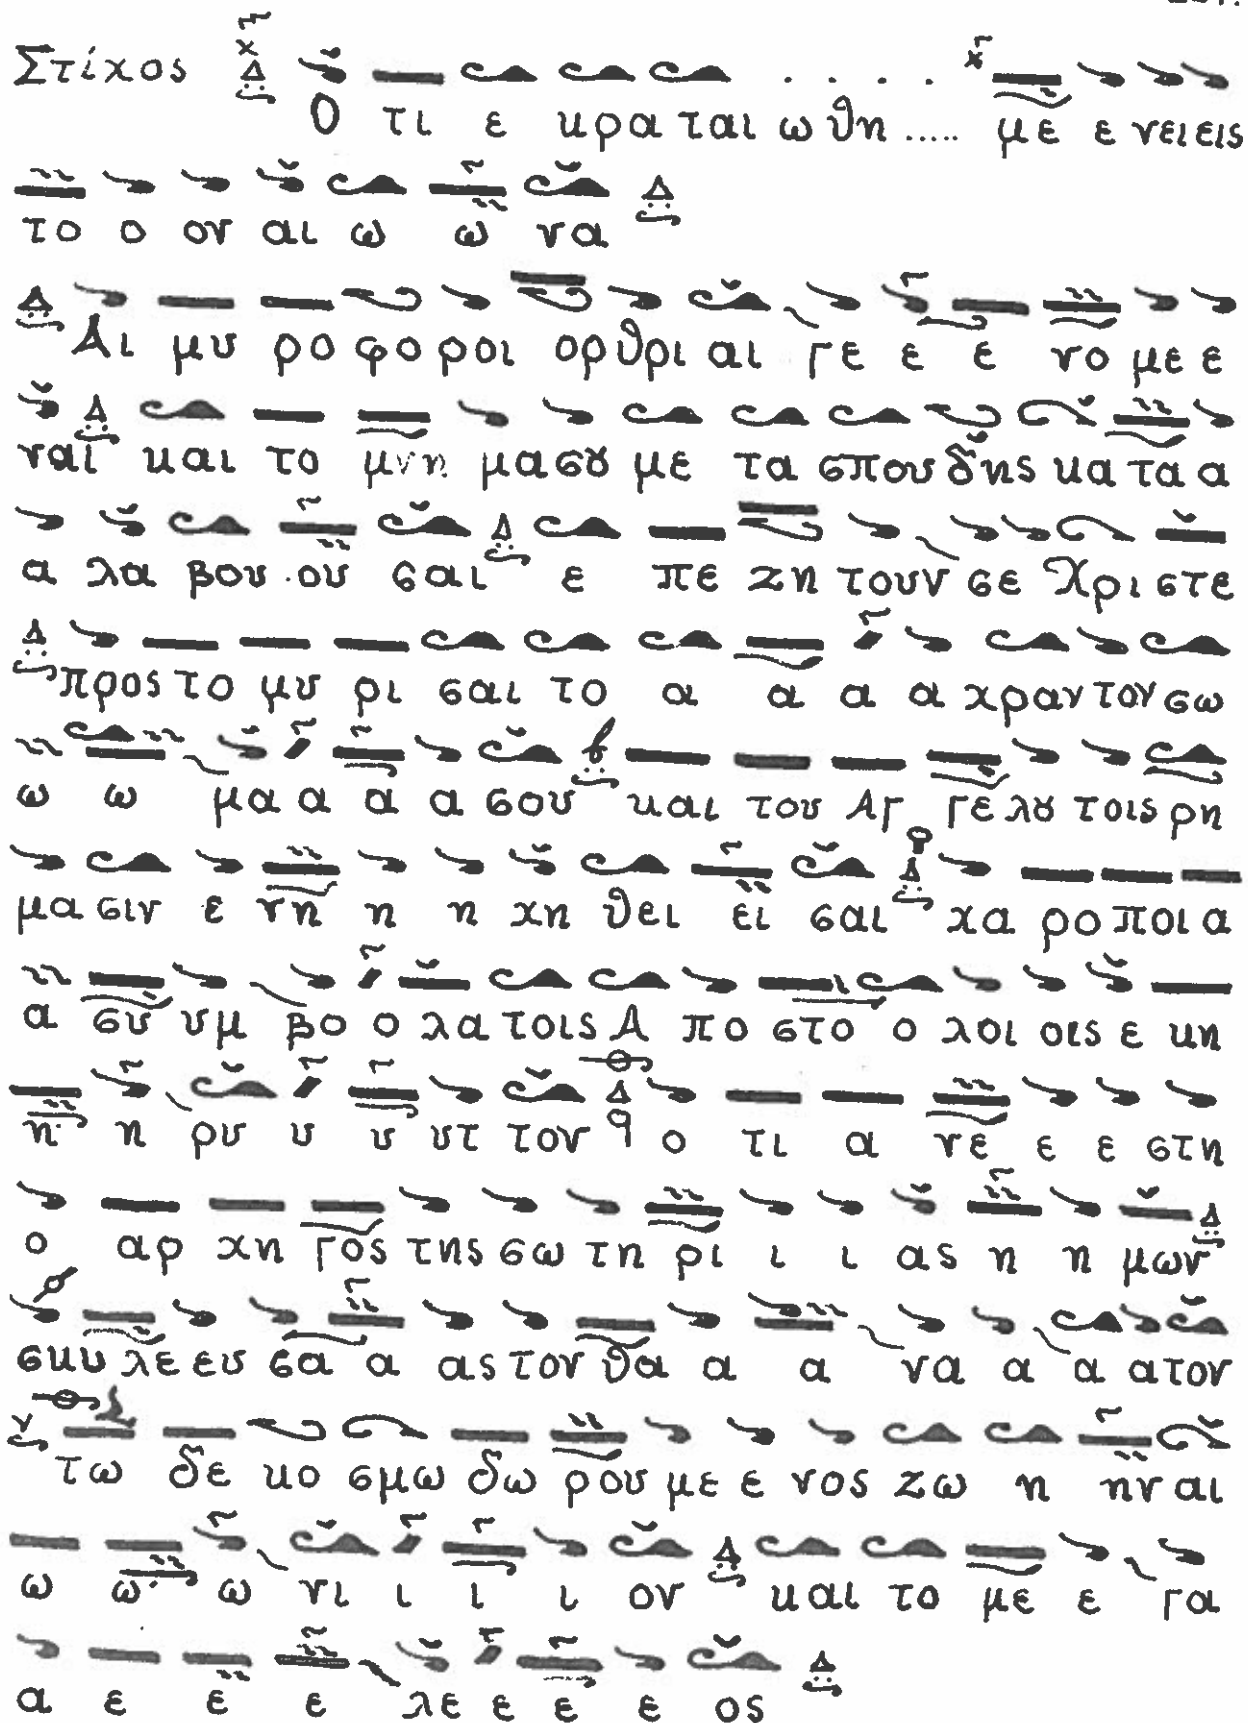 Στίχος Ο τι ε κρα ται ω θη ..... με ε νει εις
το ο ον αι ω ω να
Αι μυ ρο φο ροι ορ θρι αι γε ε ε νο με ε
ναι και το μνη μα σου με τα σπου δης κα τα α
α λα βου ου σαι ε πε ζη τουν σε Χρι στε
προς το μυ ρι σαι το α α α α χραν τον σω
ω ω μα α α α σου και του Αγ γε λου τοις ρη
μα σιν ε νη η η χη θει ει σαι χα ρο ποι α
α συ υμ βο ο λα τοις Α πο στο ο λοι οις ε κη
η η ρυ υ υ υτ τον ο τι α νε ε ε στη
ο αρ χη γος της σω τη ρι ι ι ας η η μων
σκυ λε ευ σα α ας τον θα α α να α α α τον
τω δε κο σμω δω ρου με ε νος ζω η ην αι
ω ω ω νι ι ι ι ον και το με ε γα
α ε ε ε λε ε ε ε ος